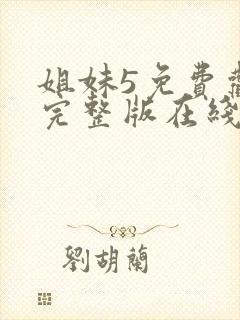 姐妹5免費觀
完整版在綫
劉胡蘭